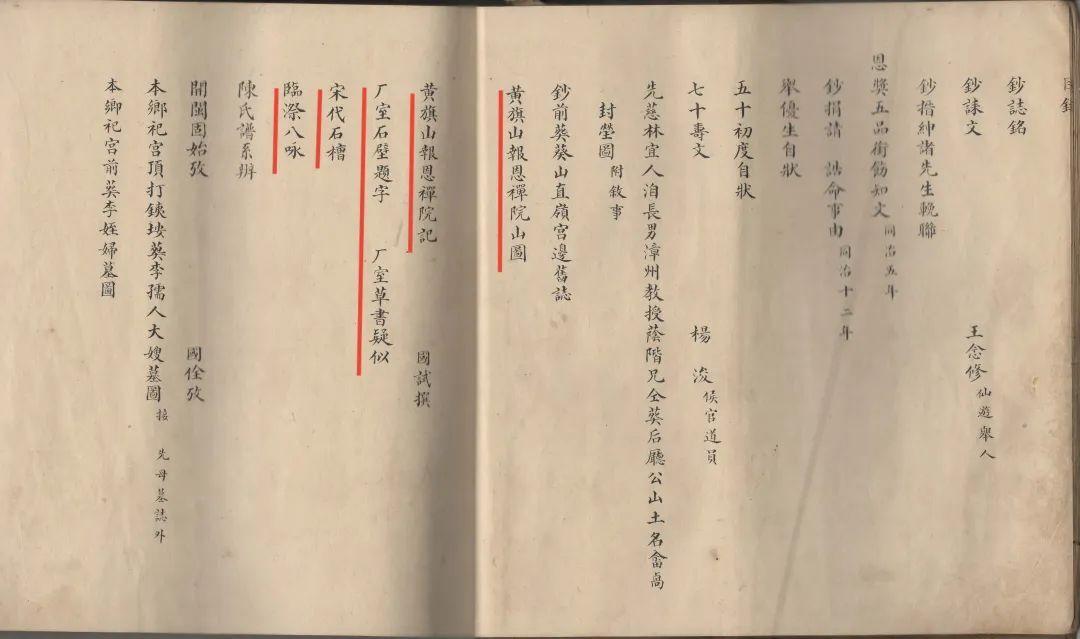 目錄
鈔誌銘
鈔誄文 王念修 仙遊舉人
鈔搢紳諸先生輓聯
恩獎五品銜飭知文 同治五年
鈔捐請 誥命事由 同治十二年
舉優生自狀
五十初度自狀
七十壽文 楊浚 候官道員
先慈林宜人洎長男漳州教授蔭階兄仝葬后廳公山土名畲扄
封塋圖 附敘事
鈔前葬葵山直嶺宮邊舊誌
黃旗山報恩禪院山圖
黃旗山報恩禪院記 國試撰
厂室石壁題字 厂室草書疑似
宋代石樯
臨漈八咏
陳氏譜系辨
開閩固始攷 國佺攷
本鄉祀宮頂打鉄垵葬李孺人大嫂墓圖 接 先母墓誌外
本鄉祀宮前葬李姪婦墓圖